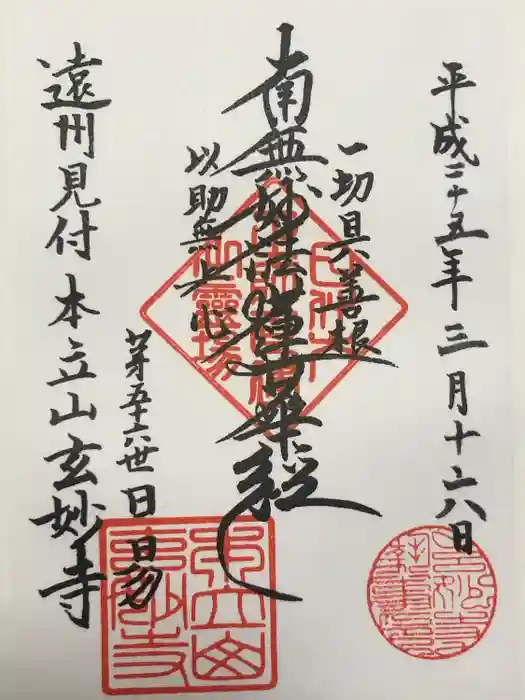 平成二十五年三月十六日
一切具善根
南無妙法蓮華経
以助無上心
第五十六世日
遠州見付本立山玄妙寺
本立山玄妙寺